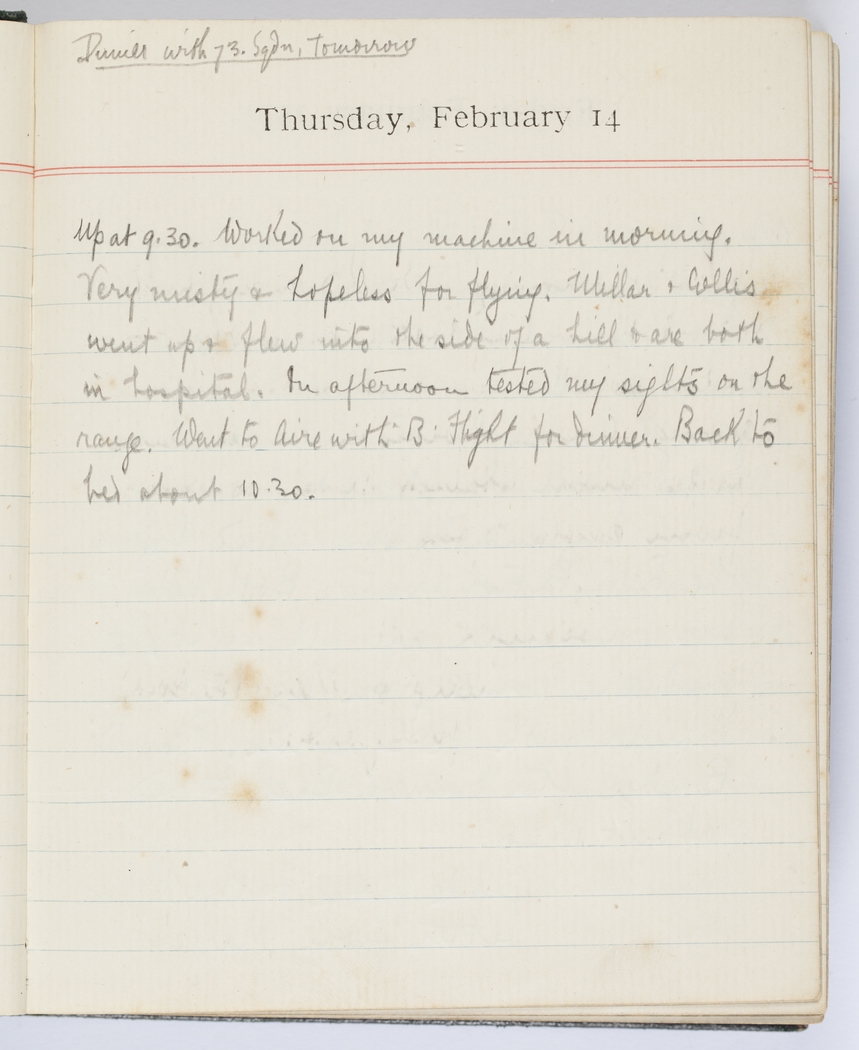 Dinner with 73. Sqdn, tomorrow
Thursday, February 14
Up at 9.30. Worked on my machine in morning.
Very misty & hopeless for flying. Millar & Collis
went up & flew into the side of a hill & are both
in hospital. In afternoon tested my sights on the
range. Went to Aire with 'B' Flight for dinner. Back to
bed about 10.30.